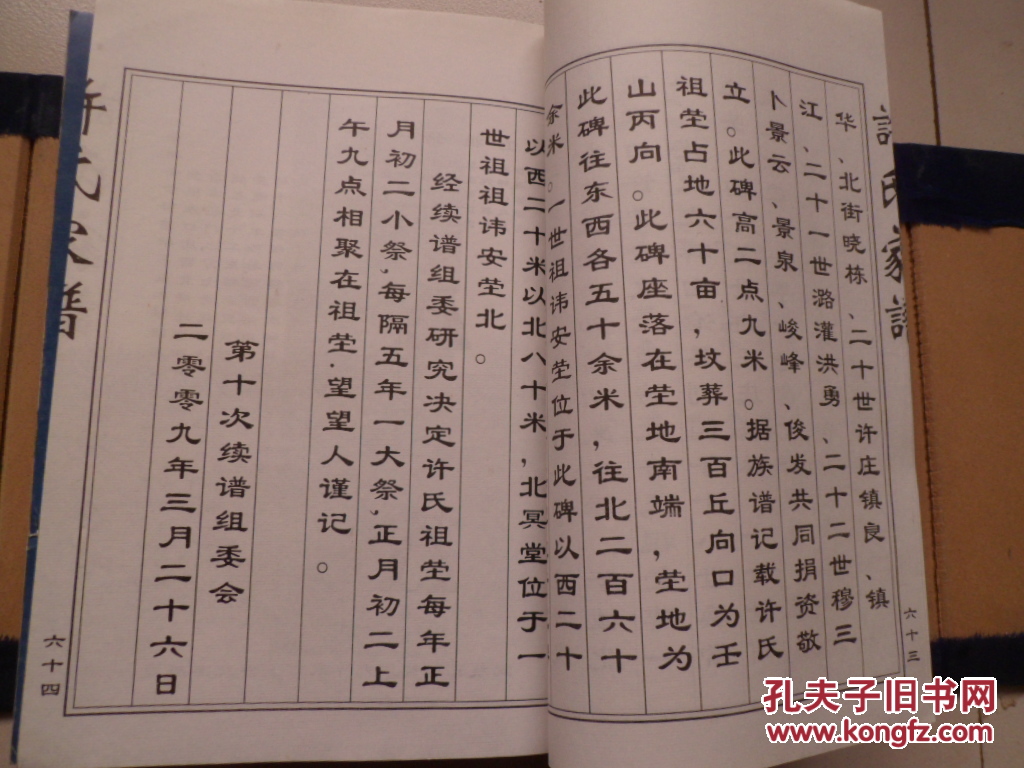 許氏家譜
华、北街晓栋、二十世许庄镇良、镇
江、二十一世潞灌洪勇、二十二世穆三
卜景云、景泉、峻峰、俊发共同捐资敬
立。此碑高二点九米。据族谱记载许氏
祖茔占地六十亩，坟葬三百丘向口为壬
山丙向。此碑座落在茔地南端，茔地为
此碑往东西各五十余米，往北二百六十
余米。一世祖讳安茔位于此碑以西二十
六十三
以西二十米以北八十米，北冥堂位于一
世祖祖讳安茔北。
经续谱组委研究决定许氏祖茔每年正
月初二小祭，每隔五年一大祭，正月初二上
午九点相聚在祖茔.望望人谨记。
第十次续谱组委会
二零零九年三月二十六日
許氏家譜
六十四
孔夫子旧书网
www.kongfz.com